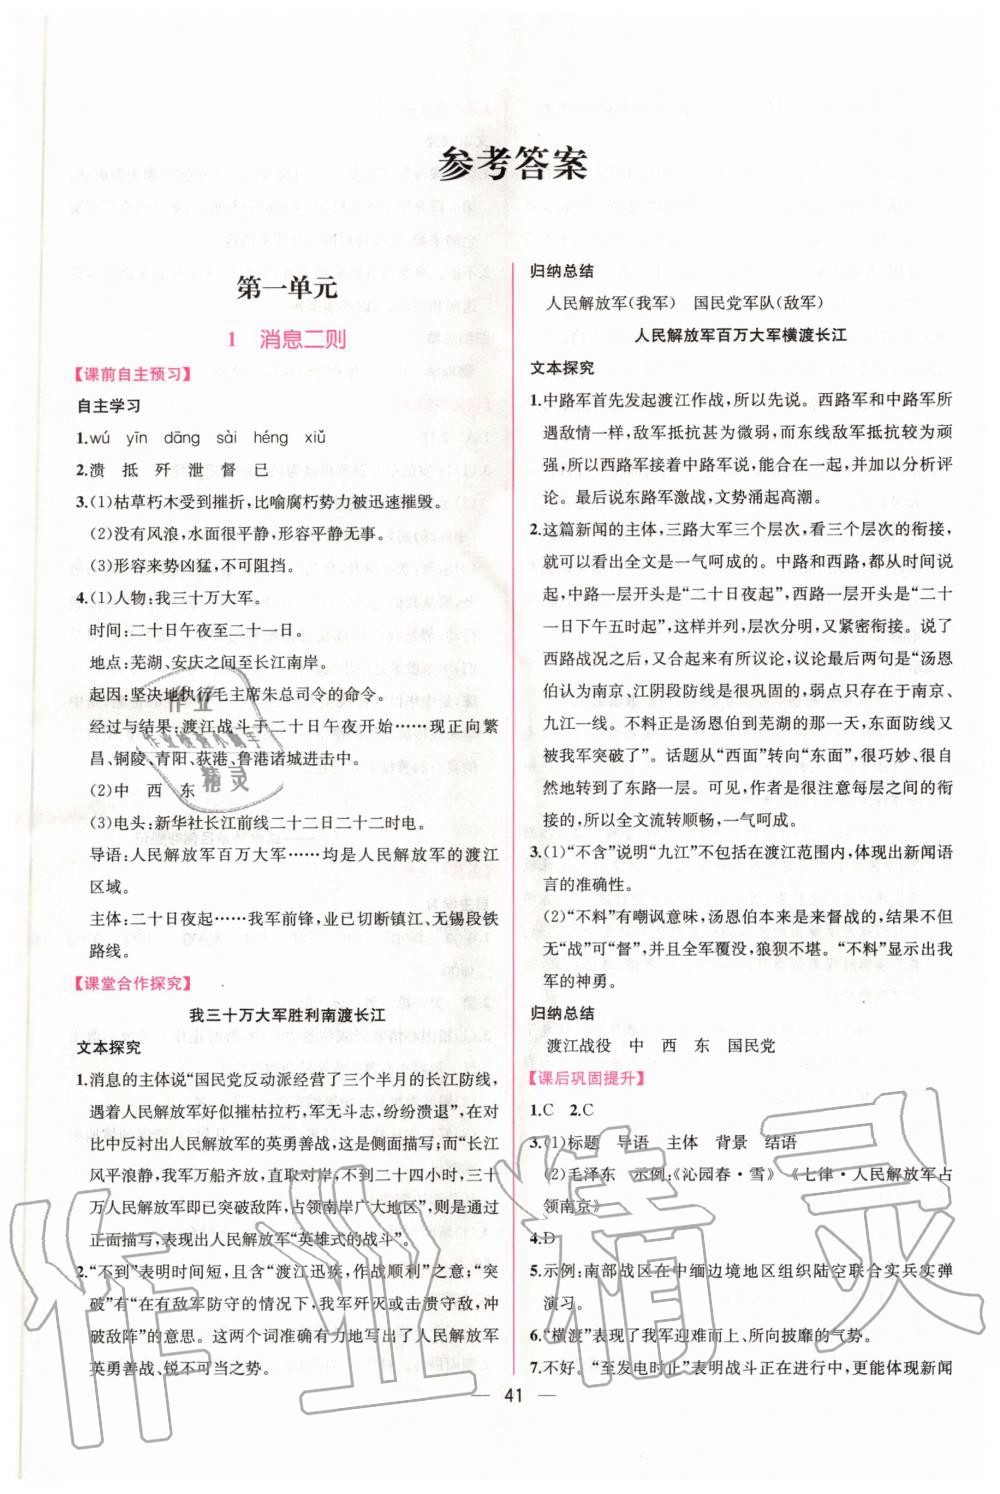 参考答案
第一单元
1 消息二则
【课前自主预习】
自主学习
1.wú yīn dāng sài héng xiǔ
2.溃 抵 歼 泄 督 已
3.(1)枯草朽木受到摧折，比喻腐朽势力被迅速摧毁。
(2)没有风浪，水面很平静，形容平静无事。
(3)形容来势凶猛，不可阻挡。
4.(1)人物：我三十万大军。
时间：二十日午夜至二十一日。
地点：芜湖、安庆之间至长江南岸。
起因：坚决地执行毛主席朱总司令的命令。
经过与结果：渡江战斗于二十日午夜开始……现正向繁
昌、铜陵、青阳、荻港、鲁港诸城进击中。
(2)中 西 东
(3)电头：新华社长江前线二十二日二十二时电。
导语：人民解放军百万大军……均是人民解放军的渡江
区域。
主体：二十日夜起……我军前锋，业已切断镇江、无锡段铁
路线。
【课堂合作探究】
我三十万大军胜利南渡长江
文本探究
1.消息的主体说“国民党反动派经营了三个半月的长江防线，
遇着人民解放军好似摧枯拉朽，军无斗志，纷纷溃退”，在对
比中反衬出人民解放军的英勇善战，这是侧面描写；而“长江
风平浪静，我军万船齐放，直取对岸，不到二十四小时，三十
万人民解放军即已突破敌阵，占领南岸广大地区”，则是通过
正面描写，表现出人民解放军“英雄式的战斗”。
2.“不到”表明时间短，且含“渡江迅疾，作战顺利”之意；“突
破”有“在有敌军防守的情况下，我军歼灭或击溃守敌，冲
破敌阵”的意思。这两个词准确有力地写出了人民解放军
英勇善战、锐不可当之势。
归纳总结
人民解放军(我军) 国民党军队(敌军)
人民解放军百万大军横渡长江
文本探究
1.中路军首先发起渡江作战，所以先说。西路军和中路军所
遇敌情一样，敌军抵抗甚为微弱，而东线敌军抵抗较为顽
强，所以西路军接着中路军说，能合在一起，并加以分析评
论。最后说东路军激战，文势涌起高潮。
2.这篇新闻的主体，三路大军三个层次，看三个层次的衔接，
就可以看出全文是一气呵成的。中路和西路，都从时间说
起，中路一层开头是“二十日夜起”，西路一层开头是“二十
一日下午五时起”，这样并列，层次分明，又紧密衔接。说了
西路战况之后，又局有所议论，议论最后两句是“汤恩
伯认为南京、江阴段防线是很巩固的，弱点只存在于南京、
九江一线。不料正是汤恩伯到芜湖的那一天，东面防线又
被我军突破了”。话题从“西面”转向“东面”，很巧妙、很自
然地转到了东路一层。作者是很注意每层之间的衔
接的，所以全文流转顺畅，一气呵成。
3.(1)“不含”说明“九江”不包括在渡江范围内，体现出新闻语
言的准确性。
(2)“不料”有嘲讽意味，汤恩伯本来是来督战的，结果不但
无“战”可“督”，并且全军覆没，狼狈不堪。“不料”显示出我
军的神勇。
归纳总结
渡江战役 中 西 东 国民党
【课后巩固提升】
1.C 2.C
3.(1)标题 导语 主体 背景 结语
(2)毛泽东 示例：《沁园春·雪》《七律·人民解放军占
领南京》
4.D
5.示例：南部战区在中缅边境地区组织陆空联合实兵实弹
演习。
6.“横渡”表现了我军迎难而上、所向披靡的气势。
7.不好。“至发电时止”表明战斗正在进行中，更能体现新闻
41
作业精灵